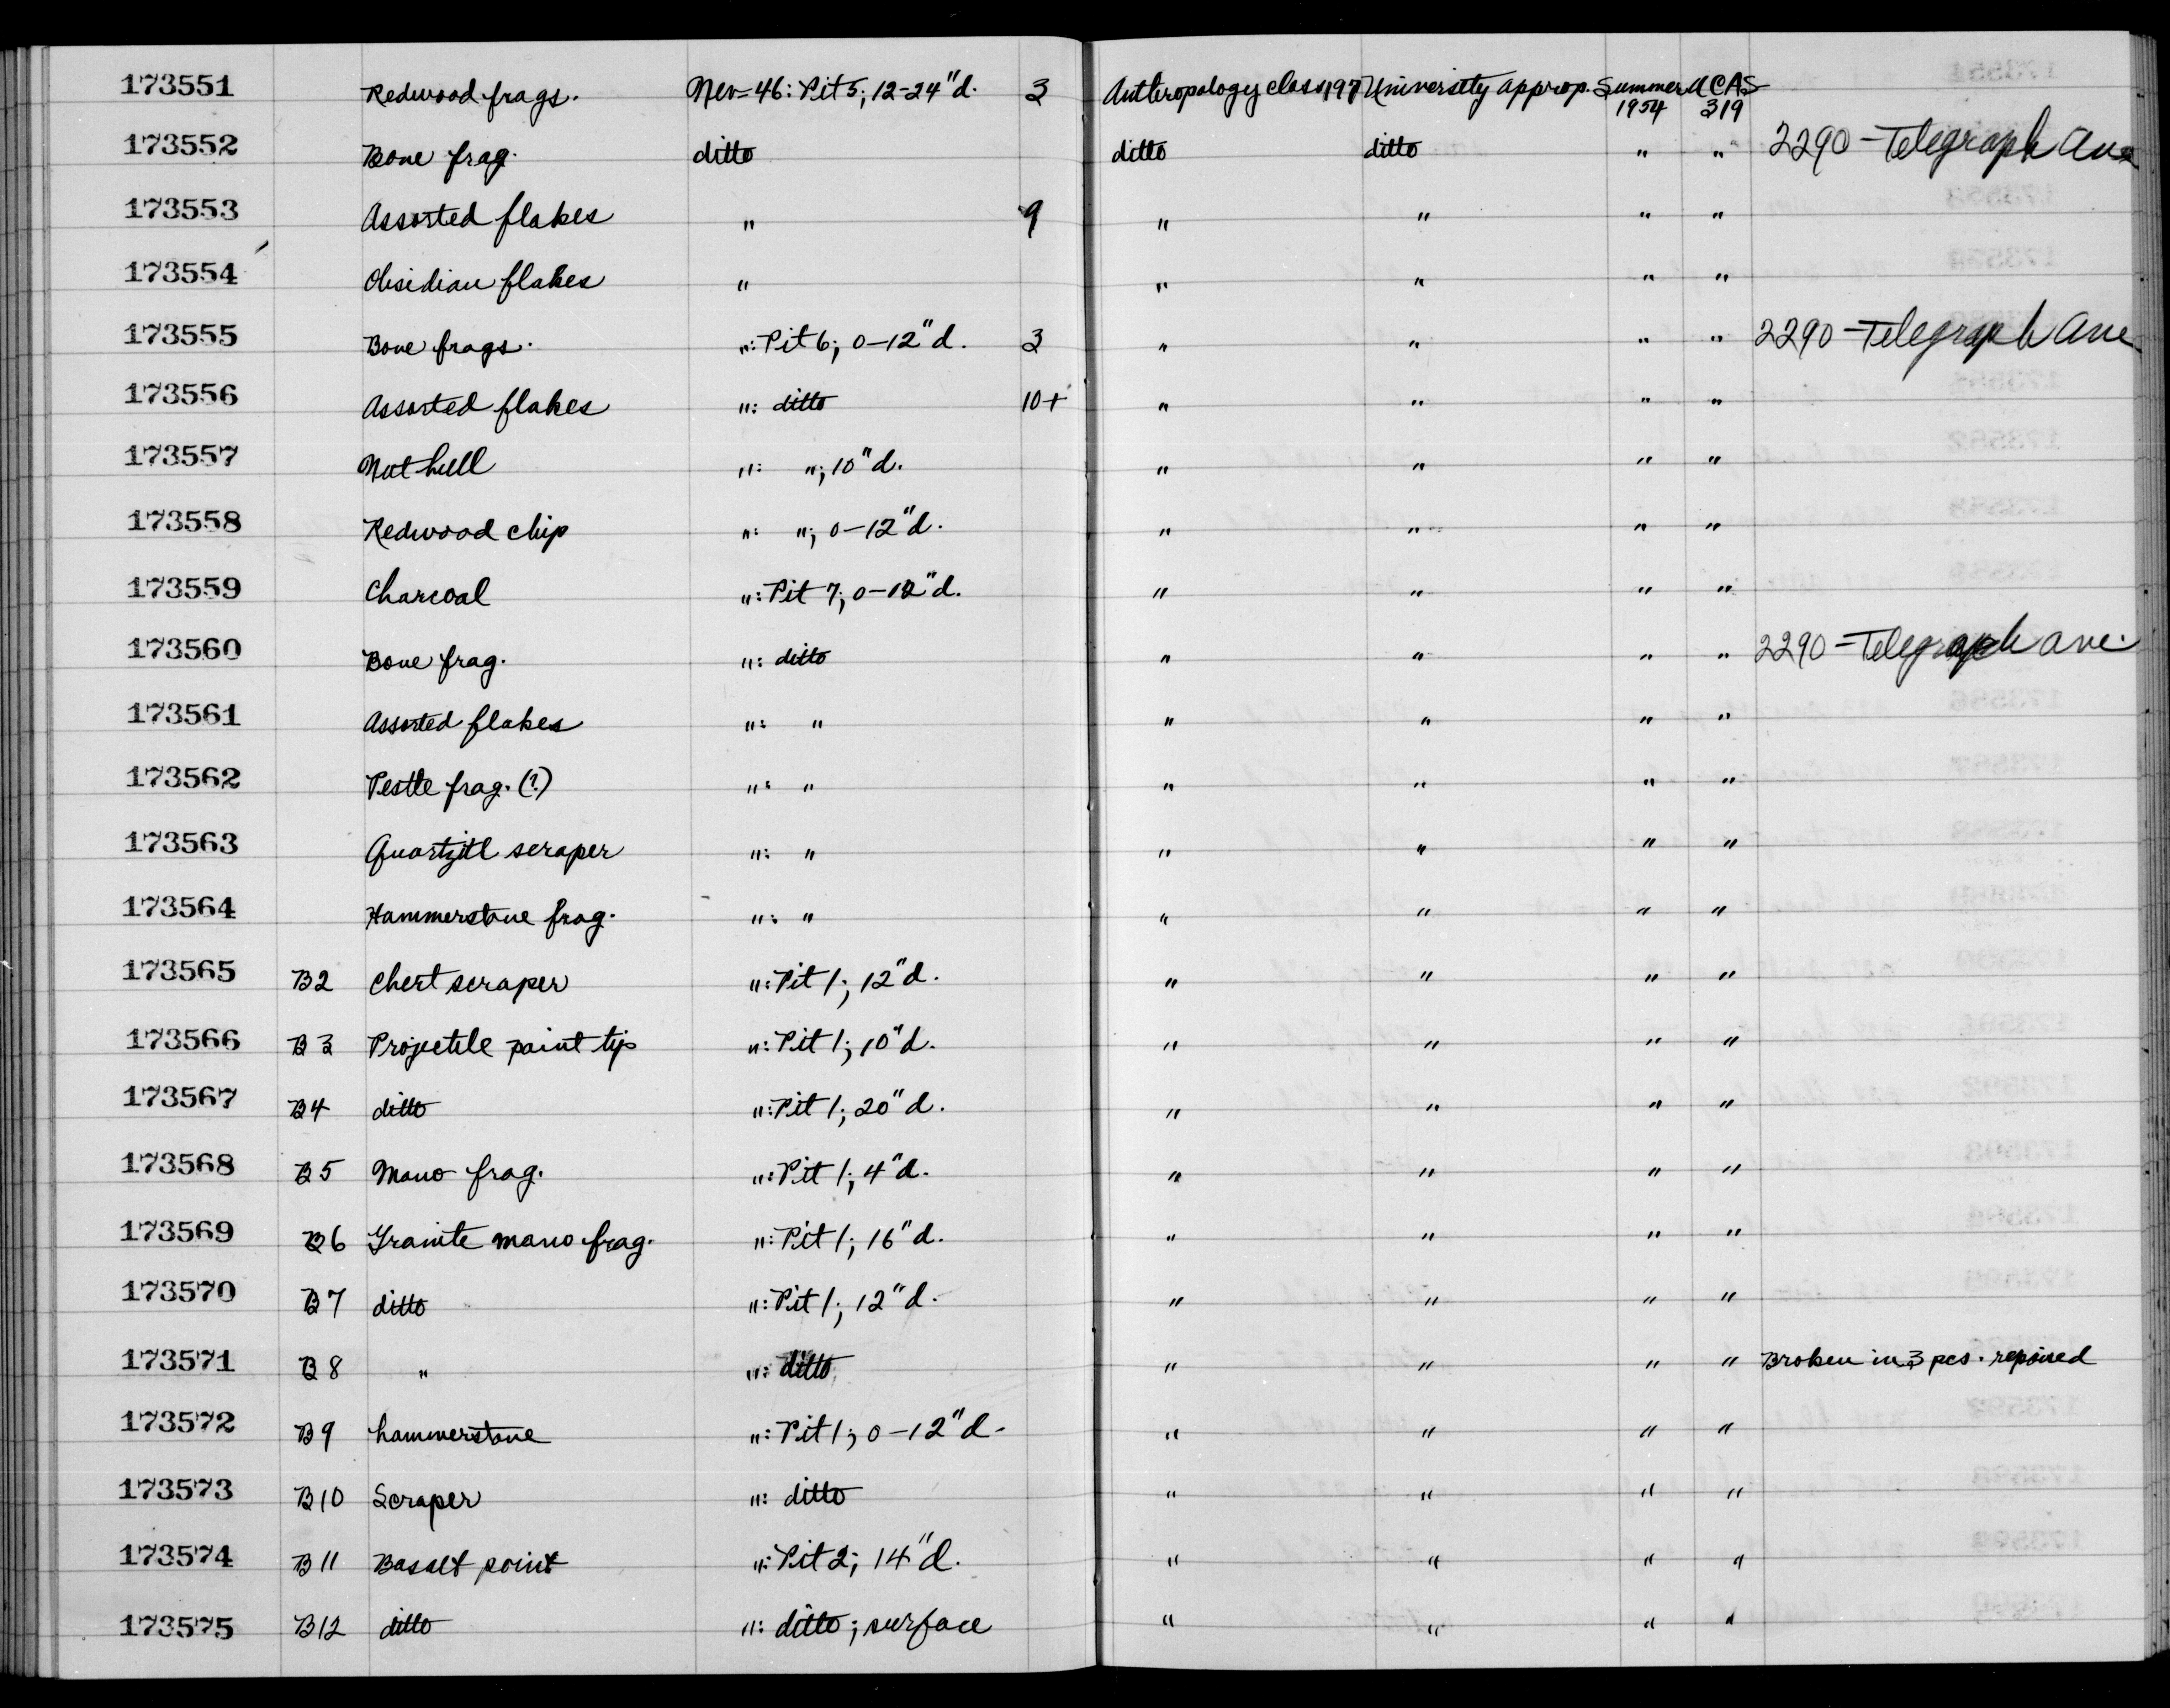 173551 Redwood frags. Nev-46: Pit 5; 12-24"d. 3 Anthropology class 197 University approp. Summer 1954 UCAS 319
173552 Bone frag. ditto ditto ditto " " 2290-Telegraph Ave
173553 Assorted flakes " 9 " " " "
173554 Obsidian flakes " " " " "
173555 Bone frags. ": Pit 6; 0-12"d. 3 " " " " 2290-Telegraph Ave
173556 Assorted flakes ": ditto 10+ " " " "
173557 Nut hull ": "; 10"d. " " " "
173558 Redwood chip ": "; 0-12"d. " " " "
173559 Charcoal ": Pit 7; 0-12"d. " " " "
173560 Bone frag. ": ditto " " " " 2290-Telegraph ave.
173561 Assorted flakes ": " " " " "
173562 Pestle frag. (?) ": " " " " "
173563 Quartzite scraper ": " " " " "
173564 Hammerstone frag. ": " " " " "
173565 B2 Chert scraper ": Pit 1; 12"d. " " " "
173566 B3 Projectile point tip ": Pit 1; 10"d. " " " "
173567 B4 ditto ": Pit 1; 20"d. " " " "
173568 B5 Mano frag. ": Pit 1; 4"d. " " " "
173569 B6 Granite mano frag. ": Pit 1; 16"d. " " " "
173570 B7 ditto ": Pit 1; 12"d. " " " "
173571 B8 " ": ditto " " " " Broken in 3 pcs. repaired
173572 B9 hammerstone ": Pit 1; 0-12"d. " " " "
173573 B10 Scraper ": ditto " " " "
173574 B11 Basalt point ": Pit 2; 14"d. " " " "
173575 B12 ditto ": ditto; surface " " " "